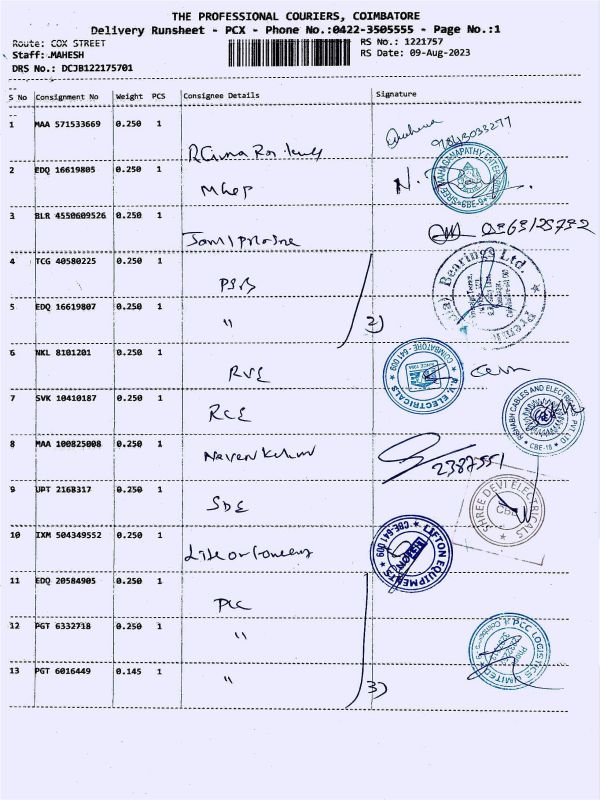 THE PROFESSIONAL COURIERS, COIMBATORE
Delivery Runsheet - PCX - Phone No.:0422-3505555 - Page No.:1
Route: COX STREET
RS No.: 1221757
Staff: MAHESH
RS Date: 09-Aug-2023
DRS No.: DCJB122175701
S No Consignment No Weight PCS Consignee Details Signature
1 MAA 571533669 0.250 1
2 EDQ 16619805 0.250 1
SHREE MAHAGANAPATHY ENTERPRISES CBE-9
3 BLR 4550609526 0.250 1
4 TCG 40580225 0.250 1
Premji Bearings Ltd.
5 EDQ 16619807 0.250 1
" 2)
6 NKL 8101201 0.250 1
RVE
R.V. ELECTRICALS COIMBATORE - 641 009
7 SVK 10410187 0.250 1
RCE
RISHABH CABLES AND ELECTRICALS PVT. LTD CBE-18
8 MAA 100825008 0.250 1
Naveen Kumar
2387551
9 UPT 2168317 0.250 1
SDE
SHREE DEVI ELECTRICALS CBE
10 IXM 504349552 0.250 1
LIFTON EQUIPMENTS CBE-641 009
11 EDQ 20584905 0.250 1
PLC
12 PGT 6332718 0.250 1
"
PCC LOGISTICS LIMITED
13 PGT 6016449 0.145 1
" 3)